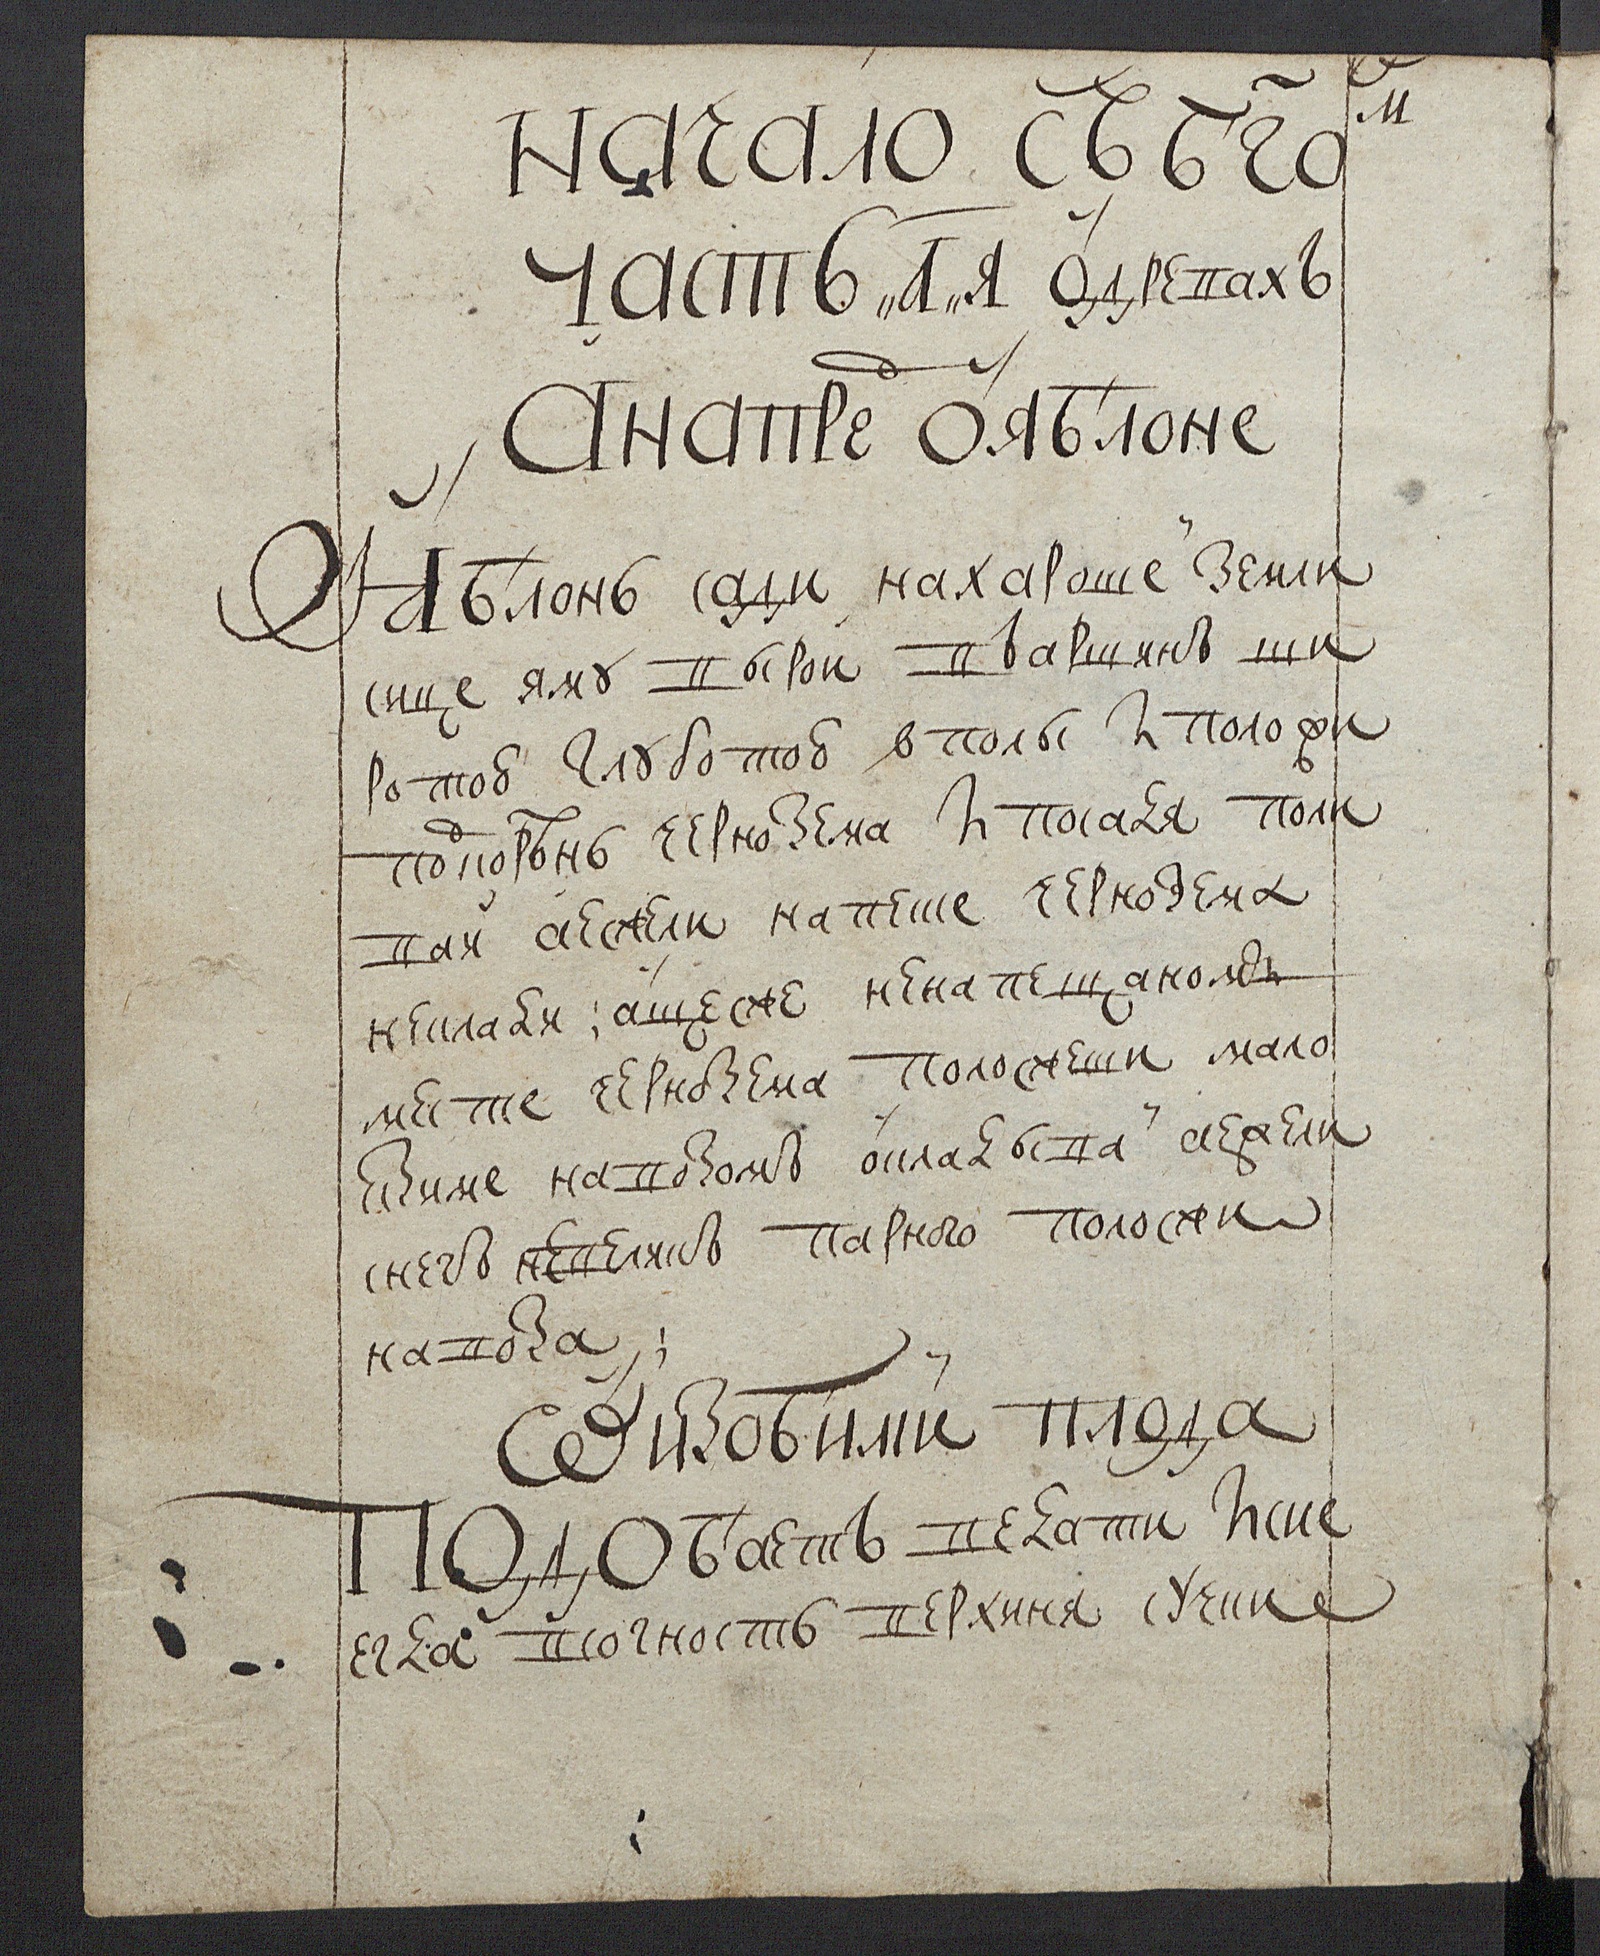 начало съ бг҃омъ
часть „а„я о древахъ
а напред о яблоне
Яблонь сади на харошей земли
сице яму вырой в аршинъ ши
ротою глуботою в полы и положи
под корень чернозема и посадя поли
вай а ежели на песке чернозема
неклади; аще же не на песчаномъ
месте чернозема положеши мало
зиме навозомъ окладывай а ежели
снегъ невеликъ парного положи
навоза;
О изобилии плода
Подобаетъ ведати и сие
егда в сочность верхиня сучие